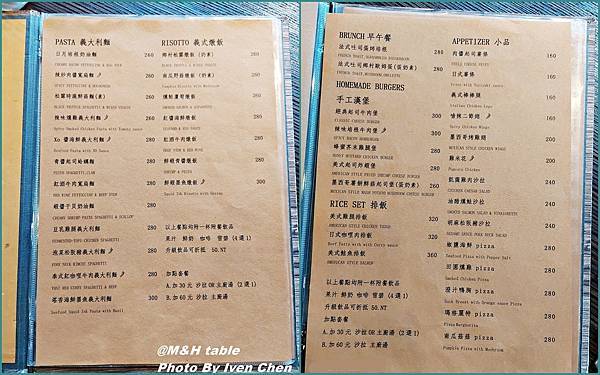 PASTA 義大利麵
日月培根奶油麵 260
CREAMY BACON FETTUCCINE & EGG YOLK
辣炒肉醬寬扁麵 260
SPICY FETTUCCINE & BOLOGNESE
松露時蔬鮮菇麵(素) 260
辣味燻雞義大利麵 260
Xo 醬海鮮義大利麵 260
Seafood Pasta with XO Sauce
青醬起司蛤蠣麵 260
PESTO SPAGHETTI,CLAM
紅酒牛肉寬扁麵 260
RED WINE FETTUCCINE & BEEF STEW
蝦醬干貝奶油麵 280
CREAMY SHRIMP-PASTE SPAGHETTI & SCALLOP
豆乳雞蒴義大利麵 280
FERMENTED-TOFU CHICKEN SPAGHETTI
泡菜松阪豬義大利麵 280
PORK NECK KIMCHI SPAGHETTI
泰式紅咖哩牛肉義大利麵 300
THAI RED CURRY BEEF SPAGHETTI
塔香海鮮墨魚義大利麵 300
Seafood Squid Ink Pasta with Basil
RISOTTO 義式燉飯
鄉村松露燉飯 (奶素) 260
BLACK TRUFFLE & MIXED VEGGIE
南瓜野菇燉飯 (奶素) 260
Pumpkin Risotto with Mushroom
燻鮭蘆筍燉飯 280
SMOKED SALMON & ASPARAGUS
紅醬海鮮燉飯 280
SEAFOOD & RED SAUCE
紅酒牛肉燉飯 280
BEEF STEW & RED WINE
鮮蝦青醬燉飯 280
SHRIMP & PESTO
鮮蝦墨魚燉飯 300
Squid Ink Risotto with Shrimp
以上餐點均附一杯附餐飲品
果汁 鮮奶 咖啡 雪碧 (4選1)
升級飲品可折抵 50.NT
加點套餐
A.加30元 沙拉OR主廚湯
B.加60元 沙拉 主廚湯
BRUNCH 早午餐
法式吐司蛋烤培根 280
FRENCH TOAST,SCRAMBLED EGG&BACON
法式吐司鄉村歐姆蛋(蛋奶素) 260
FRENCH TOAST,MUSHROOM,OMELETTE
HOMEMADE BURGERS
手工漢堡
經典起司牛肉堡 280
CLASSIC CHEESE BURGER
辣味培根牛肉堡 300
SPICY BACON HAMBURGER
蜂蜜芥末雞腿堡 260
HONEY MUSTARD CHICKEN BURGER
美式起司炸蝦堡 280
AMERICAN STYLE FRIED SHRIMP CHEESE BURGER
墨西哥薯餅鮮菇起司堡(蛋奶素) 260
RICE SET 排飯
美式雞腿排飯 320
AMERICAN STYLE CHICKEN THIGH
日式咖哩肉排飯 320
美式鮭魚排飯 360
AMERICAN STYLE SALMON
以上餐點均附一杯附餐飲品
果汁 鮮奶 咖啡 雪碧 (4選1)
升級飲品可折抵 50.NT
加點套餐
A.加30元 沙拉OR主廚湯 (2選1)
B.加60元 沙拉 主廚湯
APPETIZER 小品
肉醬起司薯條 160
日式薯條 160
義式棒棒腿 160
嗆辣二節翅 160
Spicy Chicken Wings
墨西哥烤雞翅 160
MEXICAN STYLE CHICKEN WINGS
雞米花 160
Popcorn Chicken
凱薩雞肉沙拉 240
CHICKEN CAESAR SALAD
油醋燻鮭沙拉 240
SMOKED SALMON SALAD & VINAIGRETTE
胡麻松阪豬沙拉 240
SESAME SAUCE PORK NECK SALAD
椒鹽海鮮 pizza 280
Seafood Pizza with Pepper Salt
田園燻雞 pizza 280
Smoked Chicken Pizza
澄汁鴨胸 pizza 280
Duck Breast with Orange sauce Pizza
瑪格麗特 pizza 280
Pizza Margherita
南瓜菇菇 pizza 280
Pumpkin Pizza with Mushroom
@M&H table
Photo By Iven Chen